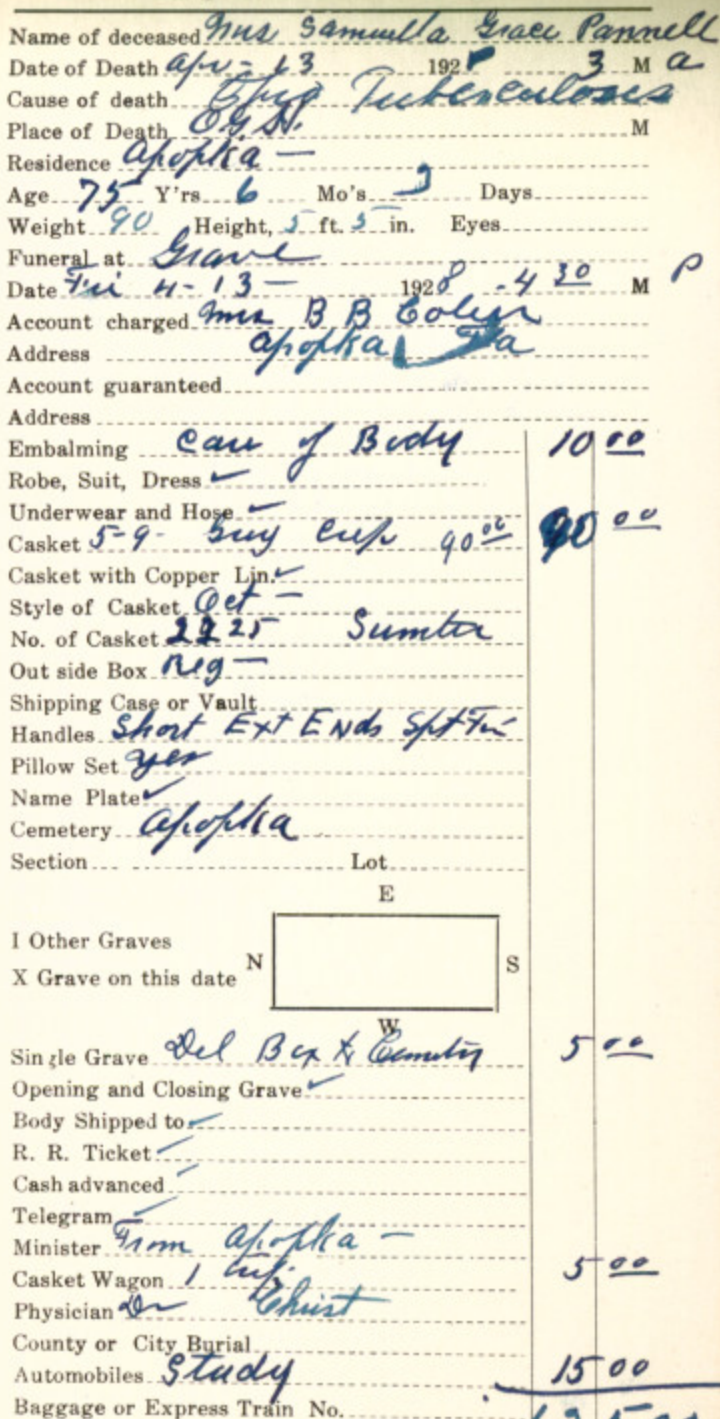 Name of deceased Mrs Samuella Grace Pannell
Date of Death Apr - 13 192 3 M a
Cause of death Tuberculosis
Place of Death O.G.H. M
Residence Apopka -
Age 75 Y'rs 6 Mo's 3 Days
Weight 90 Height, 5 ft. 5 in. Eyes
Funeral at Grave
Date Fri 4-13- 1928 -4 30 M P
Account charged Mrs B B
Address Apopka Fla
Account guaranteed
Address
Embalming Care of Body 10 00
Robe, Suit, Dress ✓
Underwear and Hose ✓
Casket 5-9- Crep 90 00 90 00
Casket with Copper Lin. ✓
Style of Casket Oct -
No. of Casket 2225 Sumter
Out side Box Reg -
Shipping Case or Vault
Handles Short Ext Ends
Pillow Set yes
Name Plate ✓
Cemetery Apopka
Section Lot
E
I Other Graves
N S
X Grave on this date
W
Single Grave Del Box to Cemetery 5 00
Opening and Closing Grave ✓
Body Shipped to ✓
R. R. Ticket ✓
Cash advanced ✓
Telegram ✓
Minister From Apopka -
Casket Wagon 1 5 00
Physician Dr Christ
County or City Burial
Automobiles Study 15 00
Baggage or Express Train No.